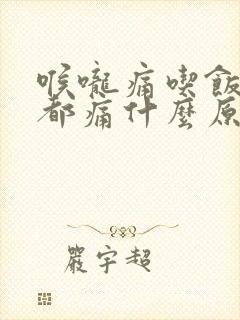 喉嚨痛喫飯
都痛什麼原
嚴宇超